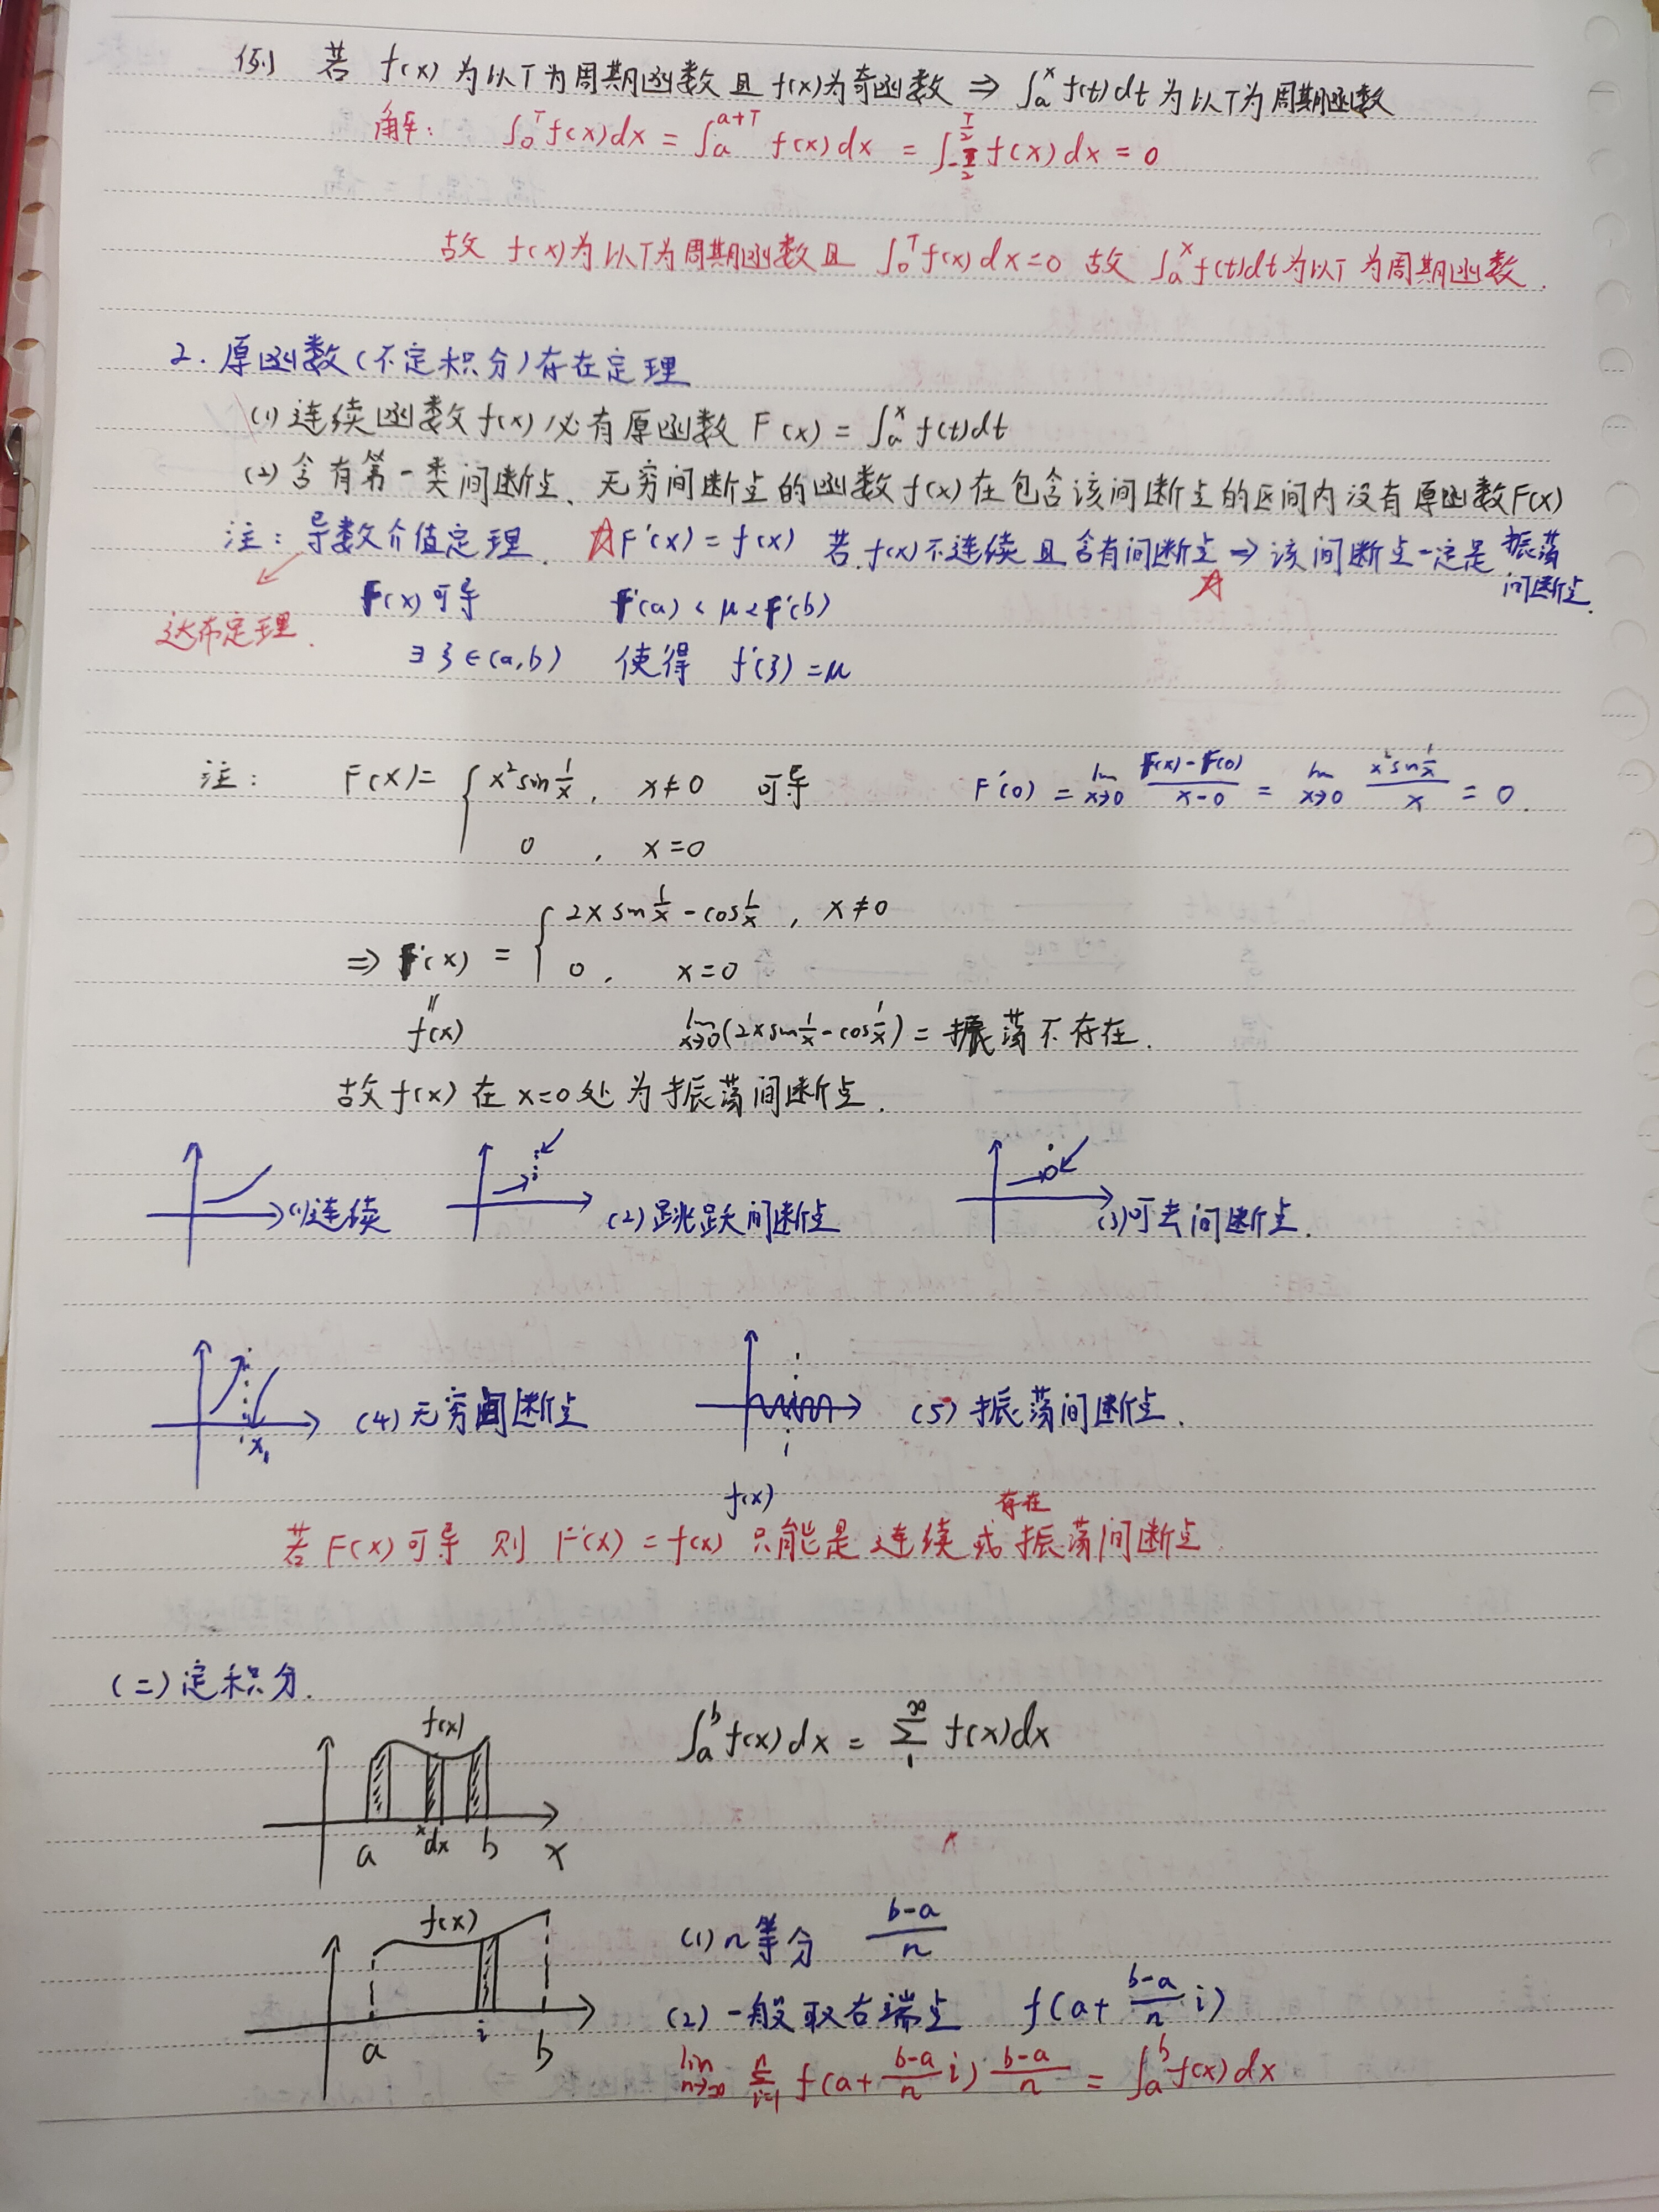 例 若 f(x)为以T为周期函数且f(x)为奇函数 ⇒ ∫ₐˣ f(t)dt为以T为周期函数
解: ∫₀ᵀ f(x)dx = ∫ₐ^(a+T) f(x)dx = ∫_(-T/2)^(T/2) f(x)dx = 0
故 f(x)为以T为周期函数且 ∫₀ᵀ f(x)dx=0 故 ∫ₐˣ f(t)dt为以T为周期函数.
2. 原函数(不定积分)存在定理
(1) 连续函数f(x)必有原函数 F(x) = ∫ₐˣ f(t)dt
(2) 含有第一类间断点、无穷间断点的函数f(x)在包含该间断点的区间内没有原函数F(x)
注: 导数介值定理. ☆F'(x) = f(x) 若f(x)不连续且含有间断点 ⇒ 该间断点一定是振荡
间断点.
☆
F(x)可导 F'(a) < μ < F'(b)
达布定理.
∃ ξ∈(a,b) 使得 f'(ξ) = μ
注: F(x) = { x² sin 1/x , x≠0 可导 F'(0) = lim x→0 (F(x)-F(0))/(x-0) = lim x→0 (x² sin 1/x)/x = 0.
0 , x=0
⇒ F'(x) = { 2x sin 1/x - cos 1/x , x≠0
0 , x=0
॥
f(x) lim x→0 (2x sin 1/x - cos 1/x) = 振荡不存在.
故f(x)在x=0处为振荡间断点.
(1)连续 (2) 跳跃间断点 (3)可去间断点.
x₁ (4) 无穷间断点 (5) 振荡间断点.
f(x)
存在
若F(x)可导 则 F'(x) = f(x) 只能是连续或振荡间断点
(二) 定积分.
f(x)
∫ₐᵇ f(x)dx = ∑₁^∞ f(x)dx
a x dx b x
f(x)
(1) n等分 (b-a)/n
(2) 一般取右端点 f(a + (b-a)/n i)
a i b
lim n→∞ ∑_(i=1)^n f(a + (b-a)/n i) (b-a)/n = ∫ₐᵇ f(x)dx